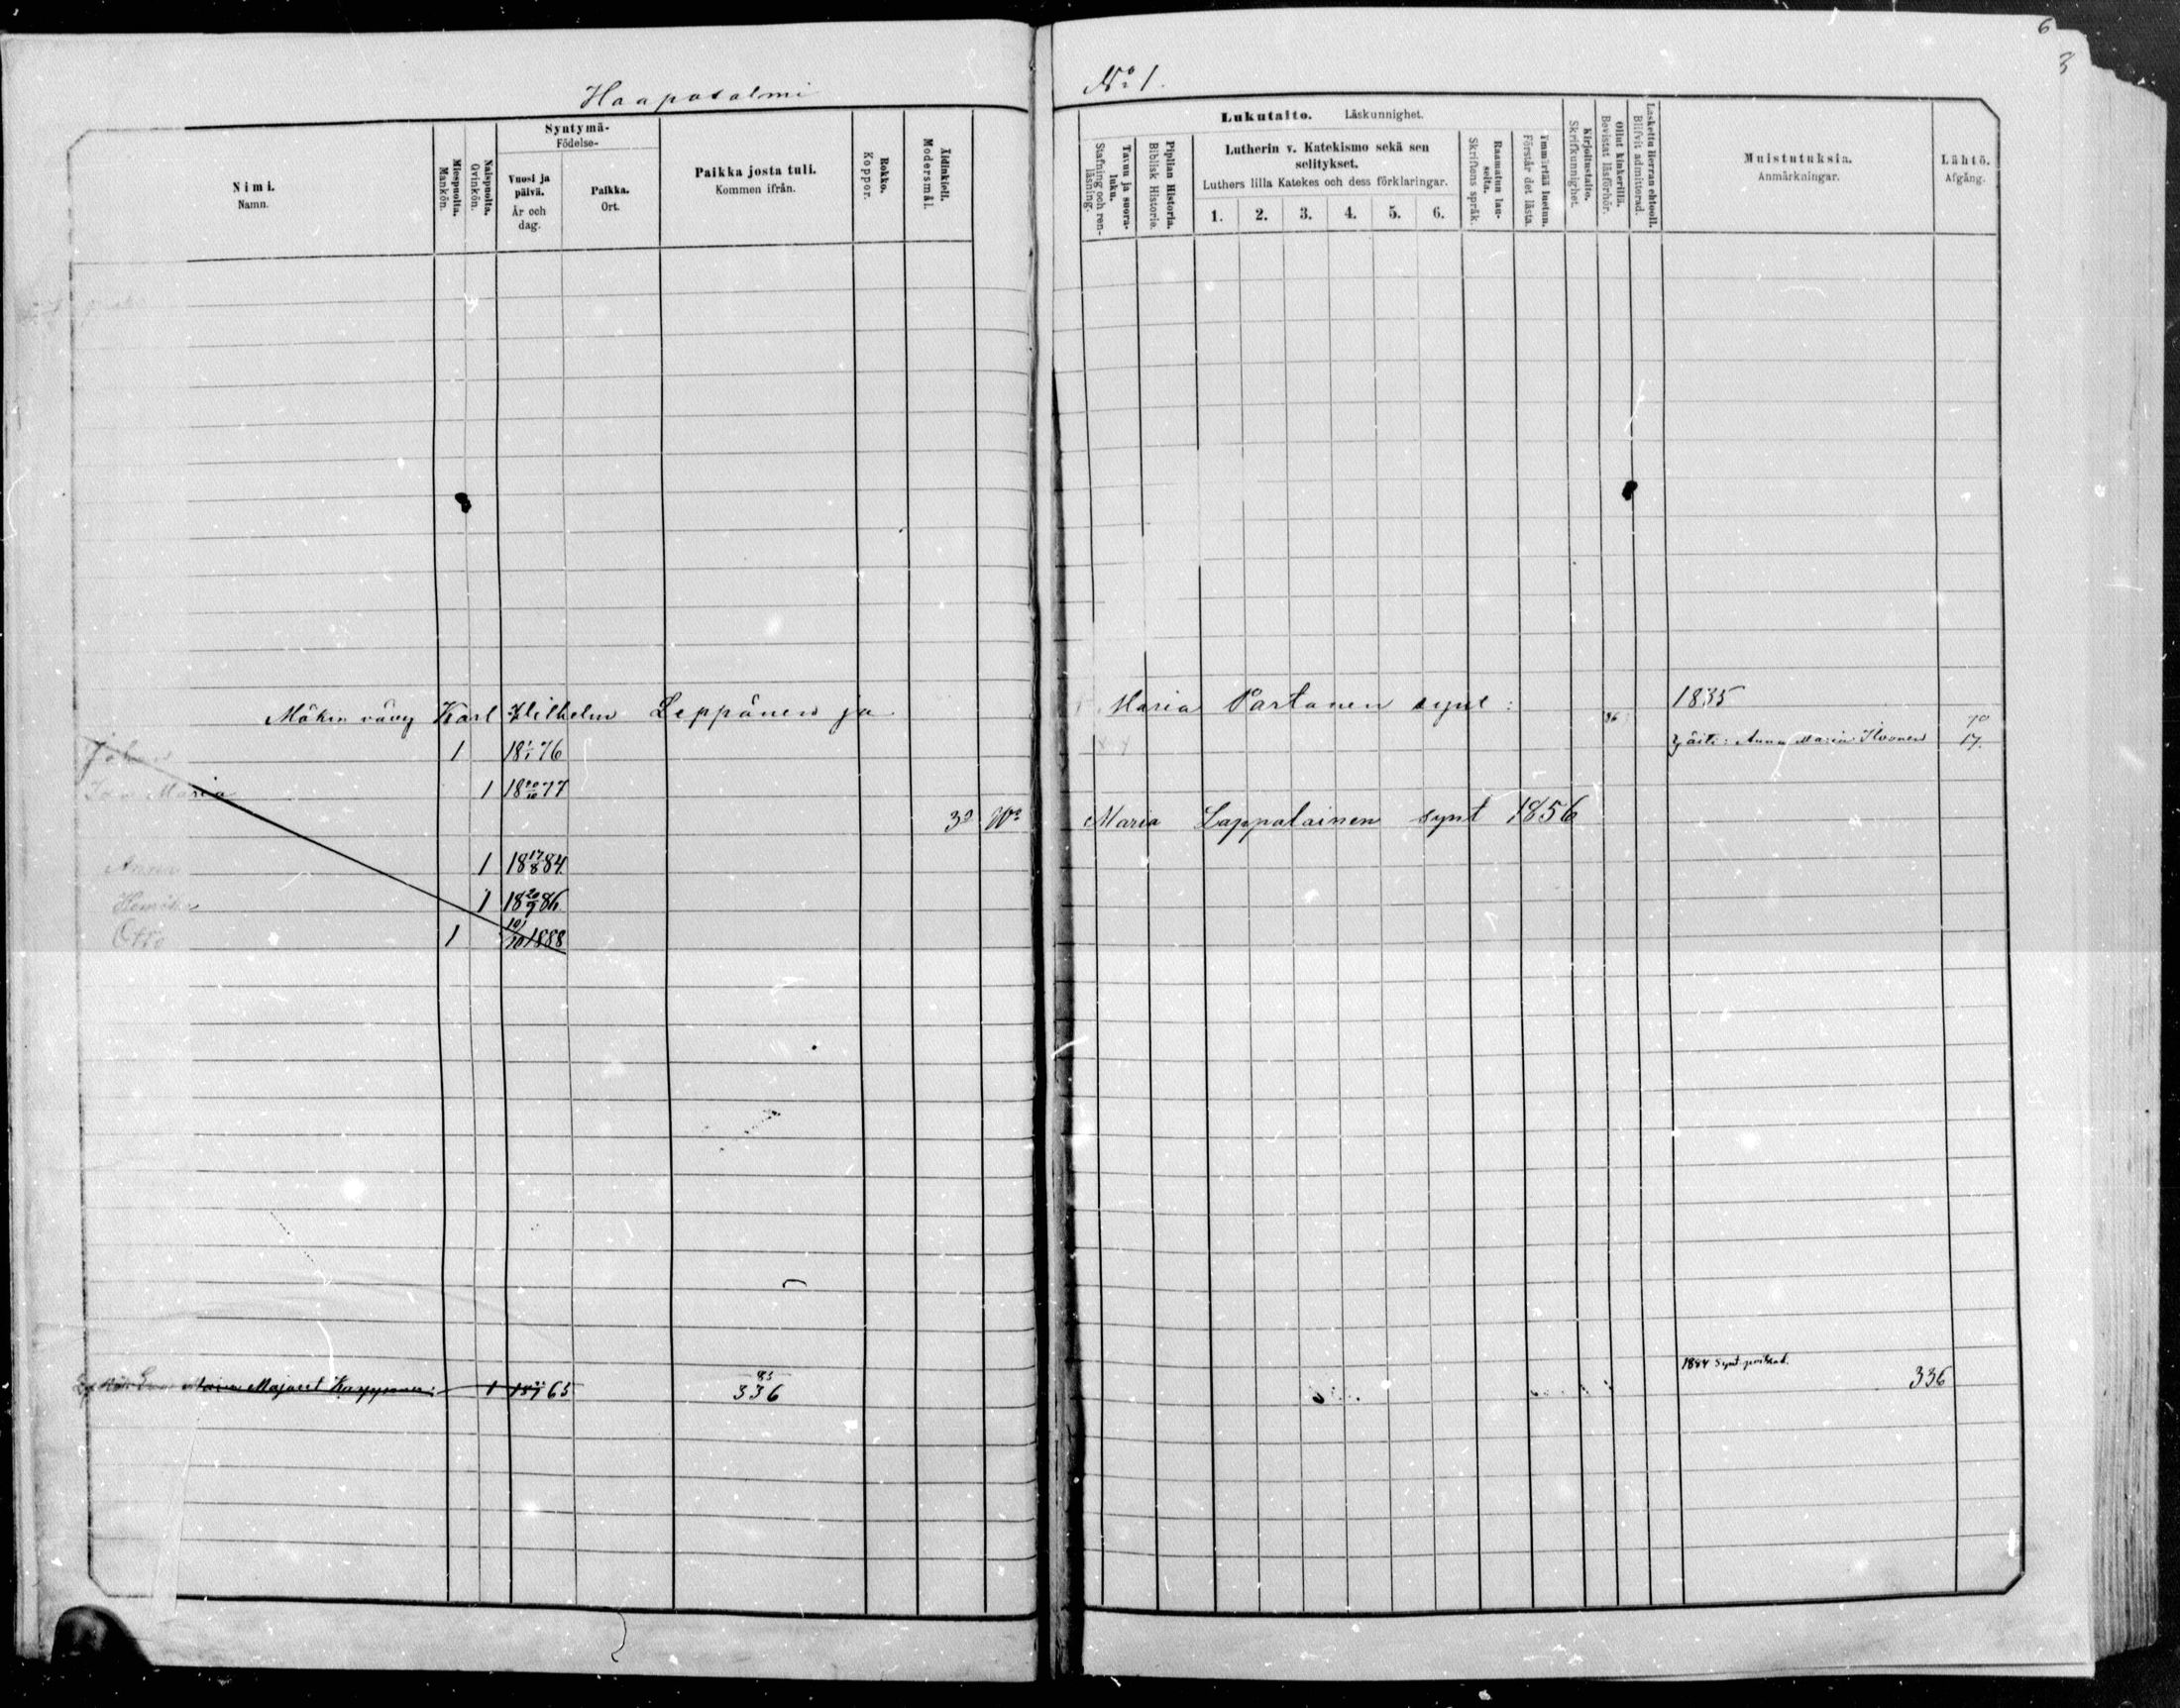 6
3
Haapasalmi
No 1.
Nimi.
Namn.
Miespuolta.
Mankön.
Naispuolta.
Qvinkön.
Syntymä-
Födelse-
Vuosi ja päivä.
År och dag.
Paikka.
Ort.
Paikka josta tuli.
Kommen ifrån.
Rokko.
Koppor.
Äidinkieli.
Modersmål.
Lukutaito. Läskunnighet.
Tavuu ja suora-luku.
Stafning och ren-läsning.
Piplian Historia.
Biblisk Historie.
Lutherin v. Katekismo sekä sen
selitykset.
Luthers lilla Katekes och dess förklaringar.
1. 2. 3. 4. 5. 6.
Raamatun lau-seita.
Skriftens språk.
Ymmärtää luetun.
Förstår det lästa.
Kirjoitustaito.
Skrifkunnighet.
Ollut kinkerillä.
Bevistat läsförhör.
Laskettu Herran ehtooll.
Blifvit admitterad.
Muistutuksia.
Anmärkningar.
Lähtö.
Afgång.
Mäkin vävy Karl Wilhelm Leppänen ja Maria Partanen synt: 1835
1 18 1/1 76 86 äiti: Anna Maria Ilvonen 17.
Maria 1 18 20/10 77
3o Wo Maria Lappalainen synt 1856
Anna 1 18 17/8 84.
1 18 20/9 86
Otto 1 10/10 1888
1884 synt.
Maria Majaret Kapponen 1 65 85 336 336